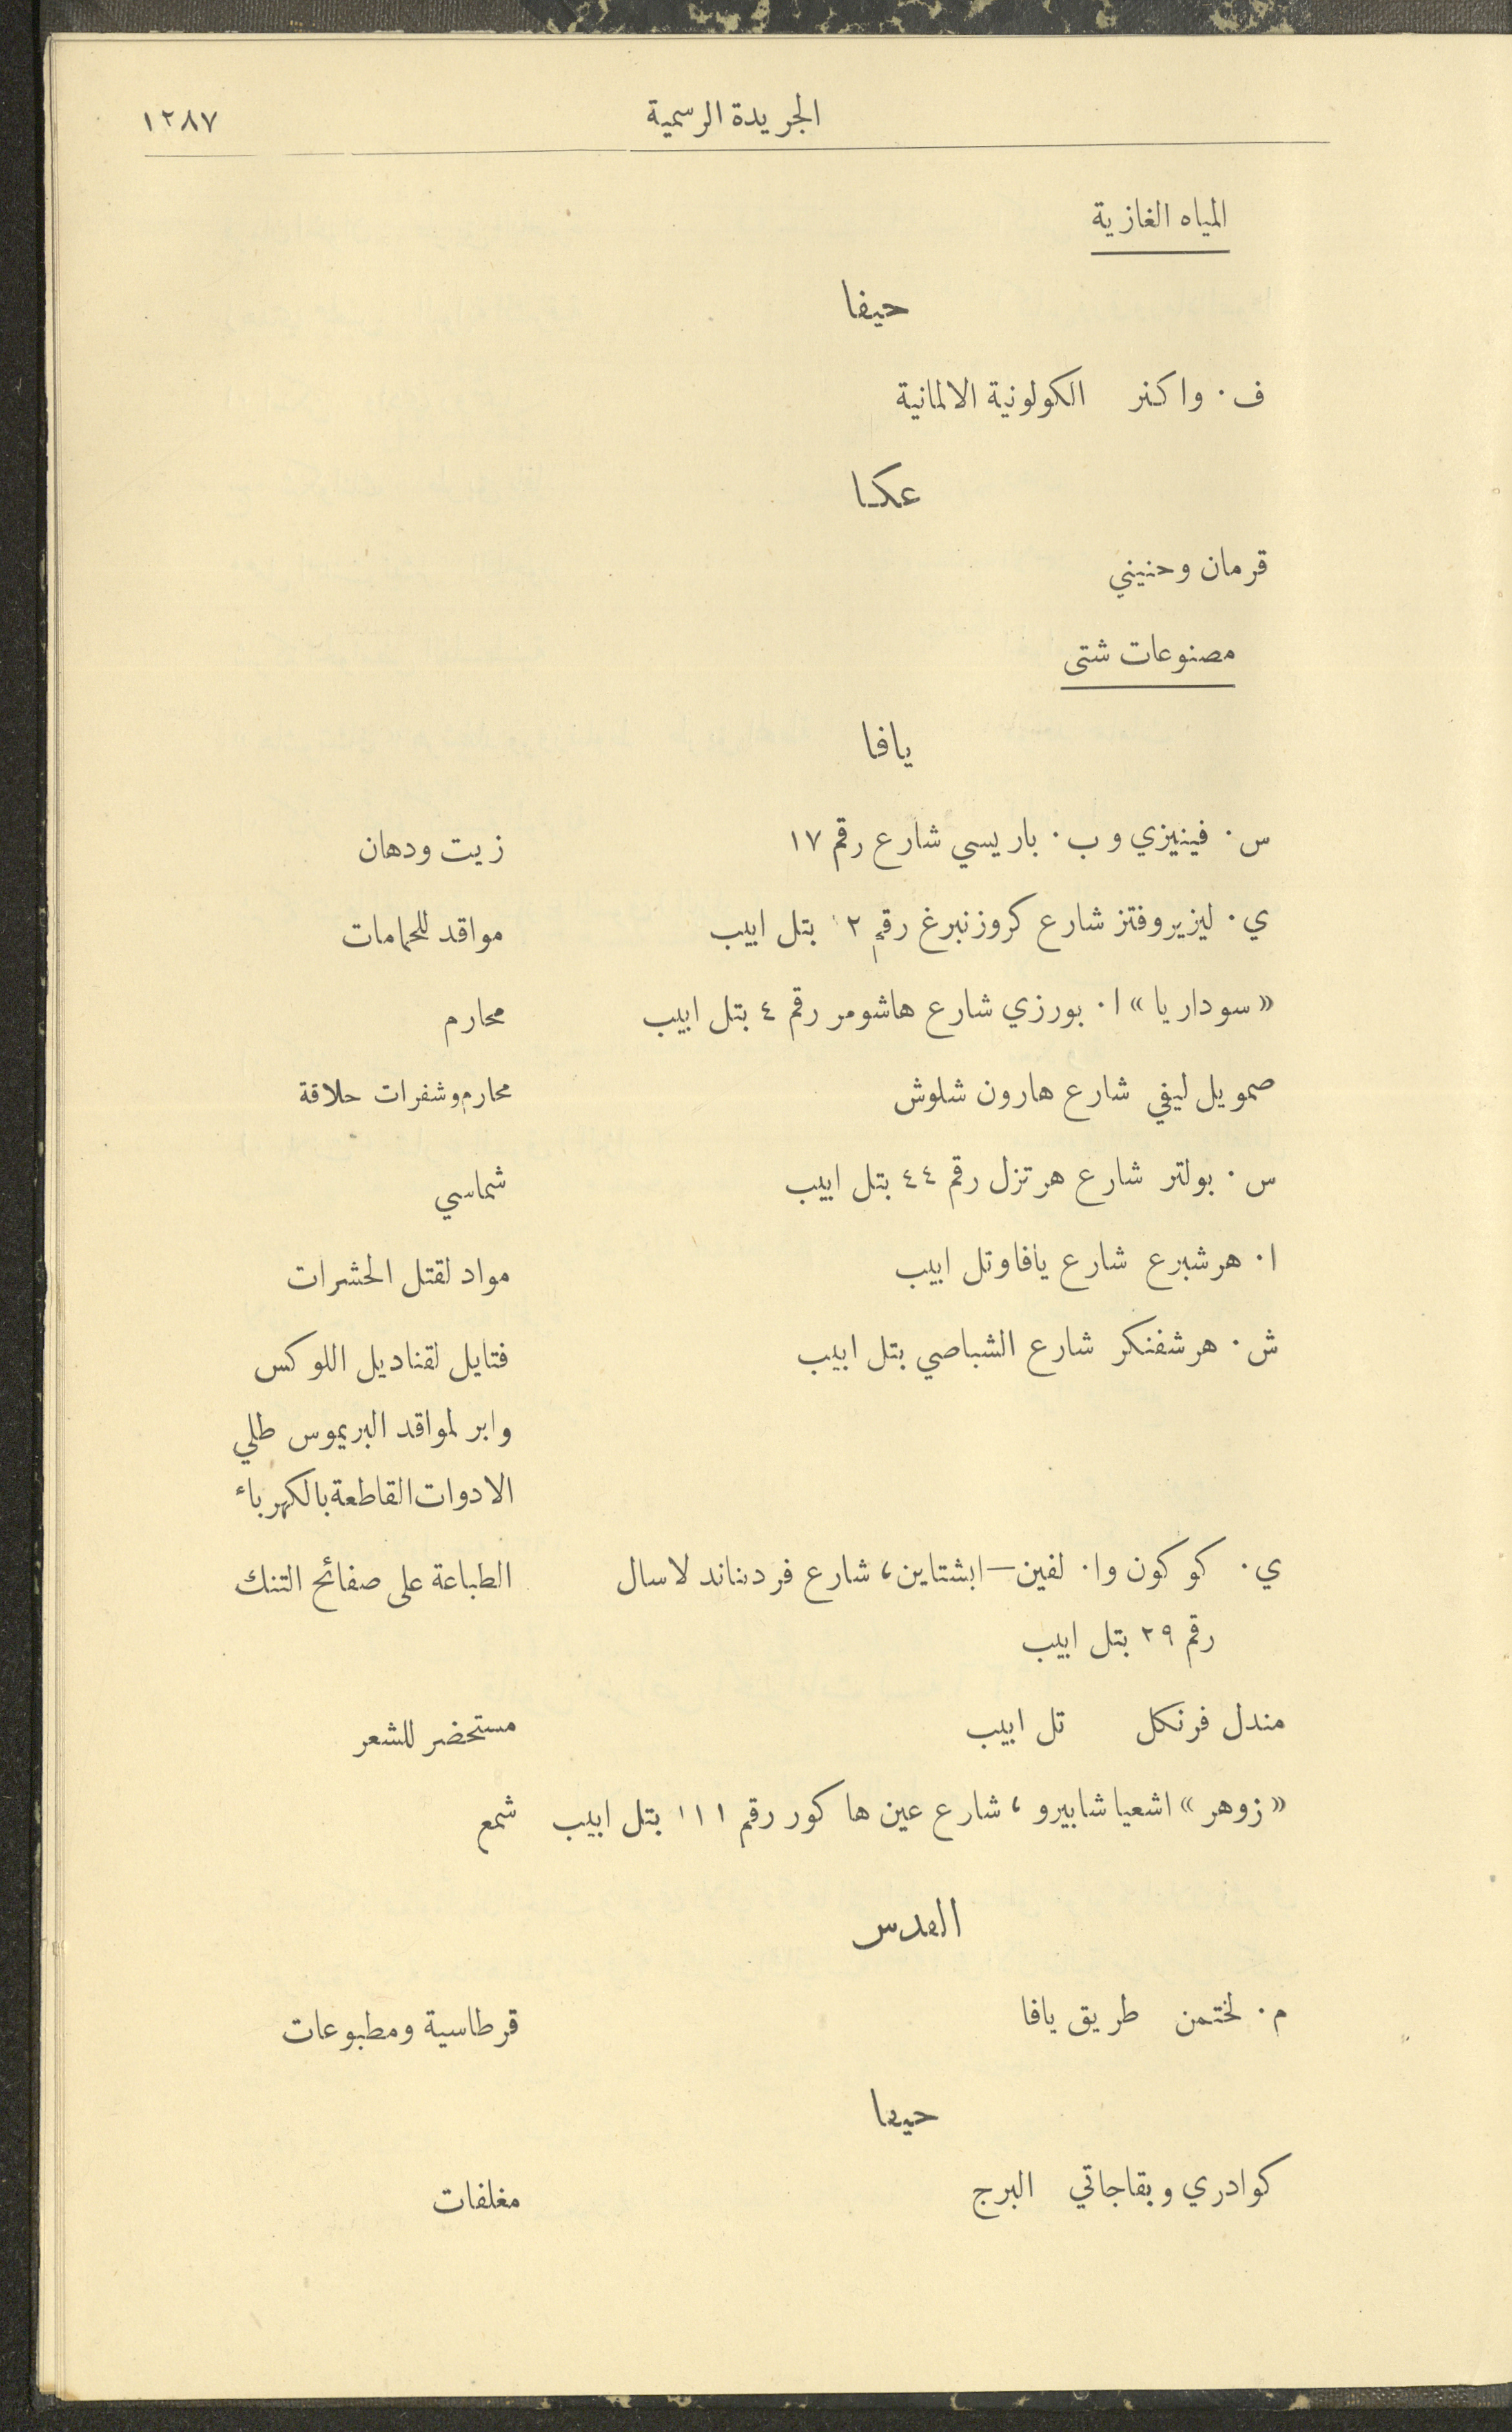 الجريدة الرسمية ١٢٨٧
المياه الغازية
حيفا
ف. واكنر الكولونية الالمانية
عكا
قرمان وحنيني
مصنوعات شتى
يافا
س. فينيزي و ب. باريسي شارع رقم ١٧ زيت ودهان
ي. ليزيروفتز شارع كروزنبرغ رقم ٢ بتل ابيب مواقد للحمامات
«سوداريا» ا. بورزي شارع هاشومر رقم ٤ بتل ابيب محارم
صمويل ليفي شارع هارون شلوش محارم وشفرات حلاقة
س. بولتر شارع هرتزل رقم ٤٤ بتل ابيب شماسي
ا. هرشبرع شارع يافا وتل ابيب مواد لقتل الحشرات
ش. هرشفنكر شارع الشباصي بتل ابيب فتايل لقناديل اللوكس
وابر لمواقد البريموس طلي
الادوات القاطعة بالكهرباء
ي. كوكون وا. لفين–ابشتاين، شارع فردناند لاسال الطباعة على صفائح التنك
رقم ٢٩ بتل ابيب
مندل فرنكل تل ابيب مستحضر للشعر
«زوهر» اشعيا شابيرو، شارع عين هاكور رقم ١١١ بتل ابيب شمع
القدس
م. لختمن طريق يافا قرطاسية ومطبوعات
حيفا
كوادري وبقاجاتي البرج مغلفات